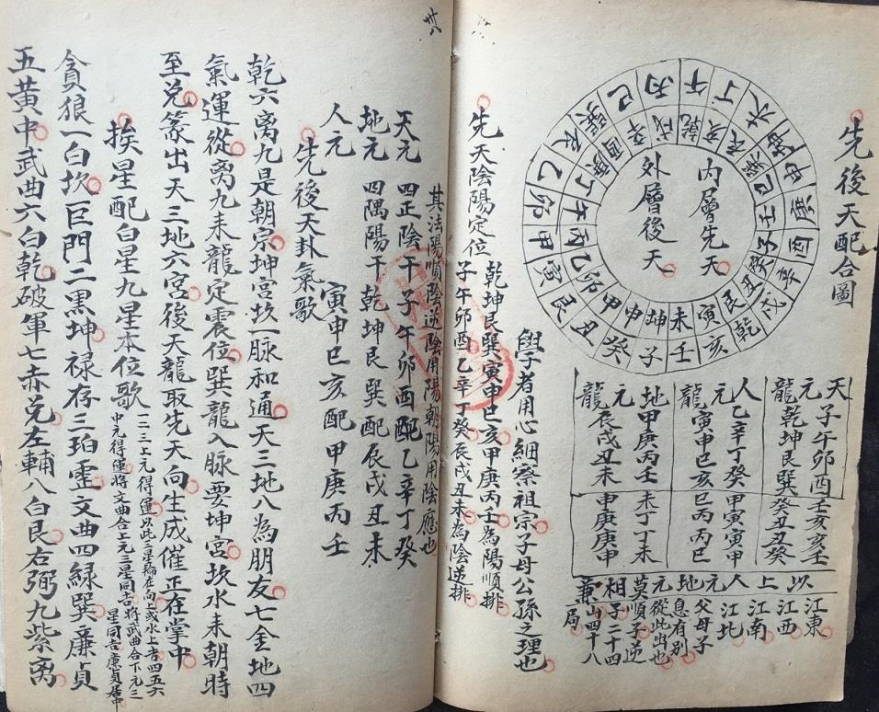 先後天配合圖
內層先天
外層後天
午丁未坤申庚酉辛戌乾亥壬子癸丑艮寅甲卯乙辰巽巳丙
乾亥辰巽巳壬子癸丑艮寅未坤申甲卯乙丙午丁庚酉辛戌
天元龍
子午卯酉壬亥亥壬
乾坤艮巽癸丑丑癸
人元龍
乙辛丁癸甲寅寅甲
寅申巳亥巳丙丙巳
地元龍
甲庚丙壬未丁丁未
辰戌丑未申庚庚申
以上人元地元莫相兼
江東
江西
江南
江北
父母子
息有別
從此出也
順子逆
子二十四
山四十八
局
學者用心細察祖宗子母公孫之理也
先天陰陽定位
乾坤艮巽寅申巳亥甲庚丙壬為陽順排
子午卯酉乙辛丁癸辰戌丑未為陰逆排
卅
其法陽順陰逆陰用陽朝陽用陰應也
天元 四正陰干子午卯酉配乙辛丁癸
地元 四隅陽干乾坤艮巽配辰戌丑未
人元 寅申巳亥配甲庚丙壬
先後天卦氣歌
乾六离九是朝宗坤宮坎一脉和通天三地八為朋友七金地四
氣運從离九来龍定震位巽龍入脉要坤宮坎水来朝時
至兌篆出天三地六宮後天龍取先天向生成催正在掌中
挨星配白星九星本位歌
一二三上元得運以此三星輪在向上或水上者四五六
中元得運將文曲合上元三星同吉將武曲合下元三
星同吉廉貞居中
貪狼一白坎巨門二黒坤禄存三珀震文曲四緑巽廉貞
五黄中武曲六白乾破軍七赤兌左輔八白艮右弼九紫离